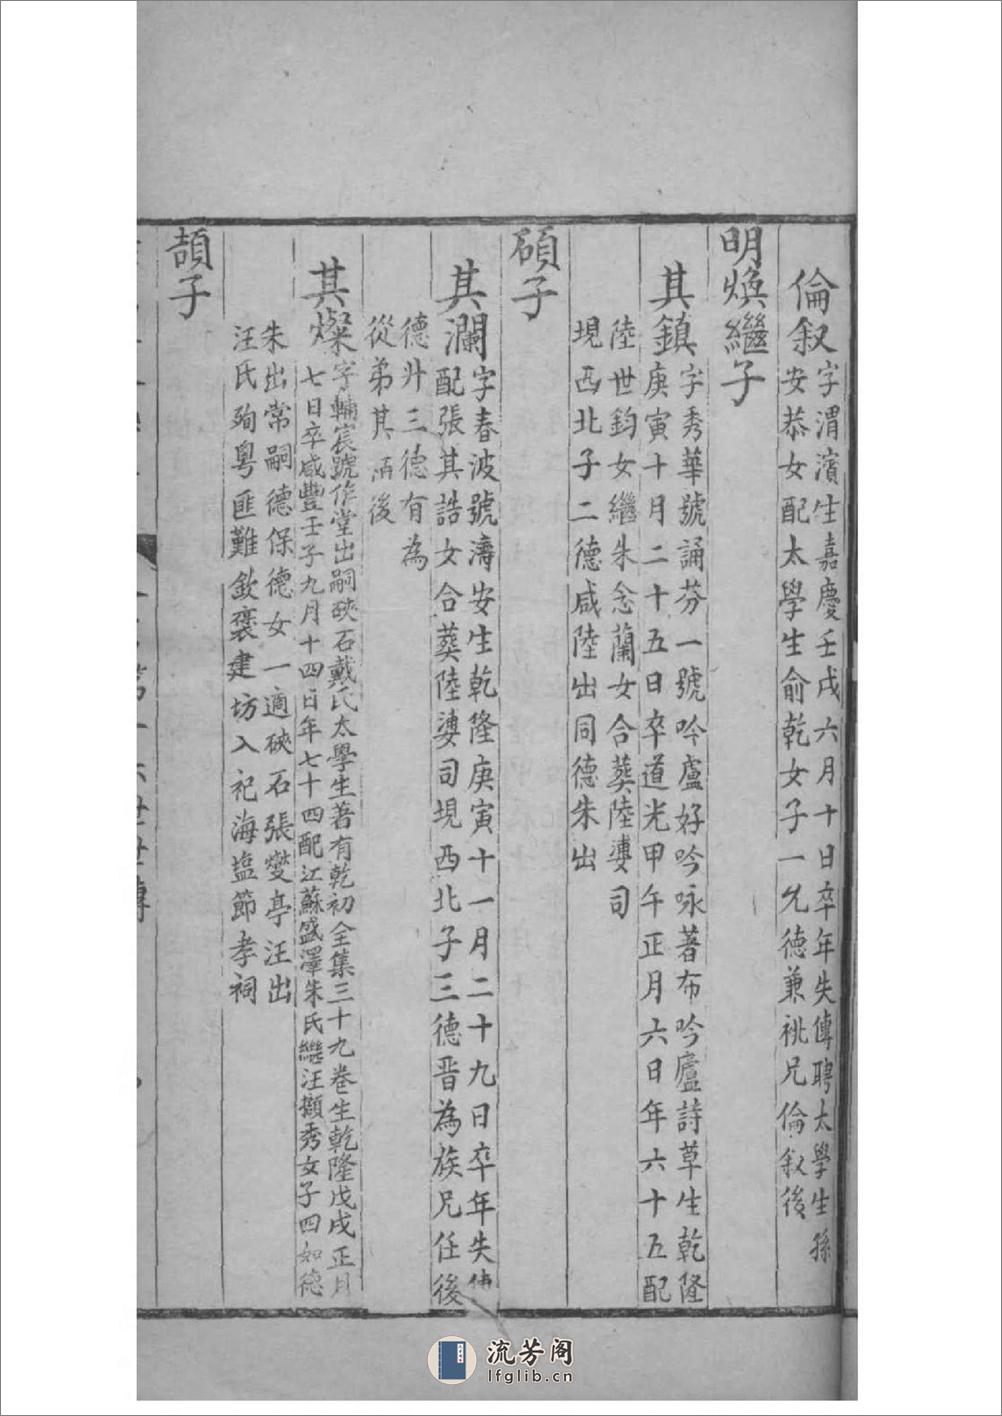 倫叙
字渭濱生嘉慶壬戌六月十日卒年失傳聘太學生孫
安恭女配太學生俞乾女子一允德兼祧兄倫叙後
明煥繼子
其鎮
字秀華號誦芬一號吟盧好吟咏著布吟廬詩草生乾隆
庚寅十月二十五日卒道光甲午正月六日年六十五配
陸世鈞女繼朱念蘭女合葬陸婆司
現西北子二德咸陸出同德朱出
碩子
其瀾
字春波號濤安生乾隆庚寅十一月二十九日卒年失傳
配張其誥女合葬陸婆司現西北子三德晋為族兄任後
德升三德有為
從弟其後
其燦
字輔宸號作堂出嗣硤石戴氏太學生著有乾初全集三十九卷生乾隆戊戌正月
七日卒咸豐壬子九月十四日年七十四配江蘇盛澤朱氏繼汪擷秀女子四如德
朱出常嗣德保德女一適硤石張燮亭汪出
汪氏殉粤匪難欽褒建坊入祀海塩節孝祠
頡子
流芳阁
lfglib.cn